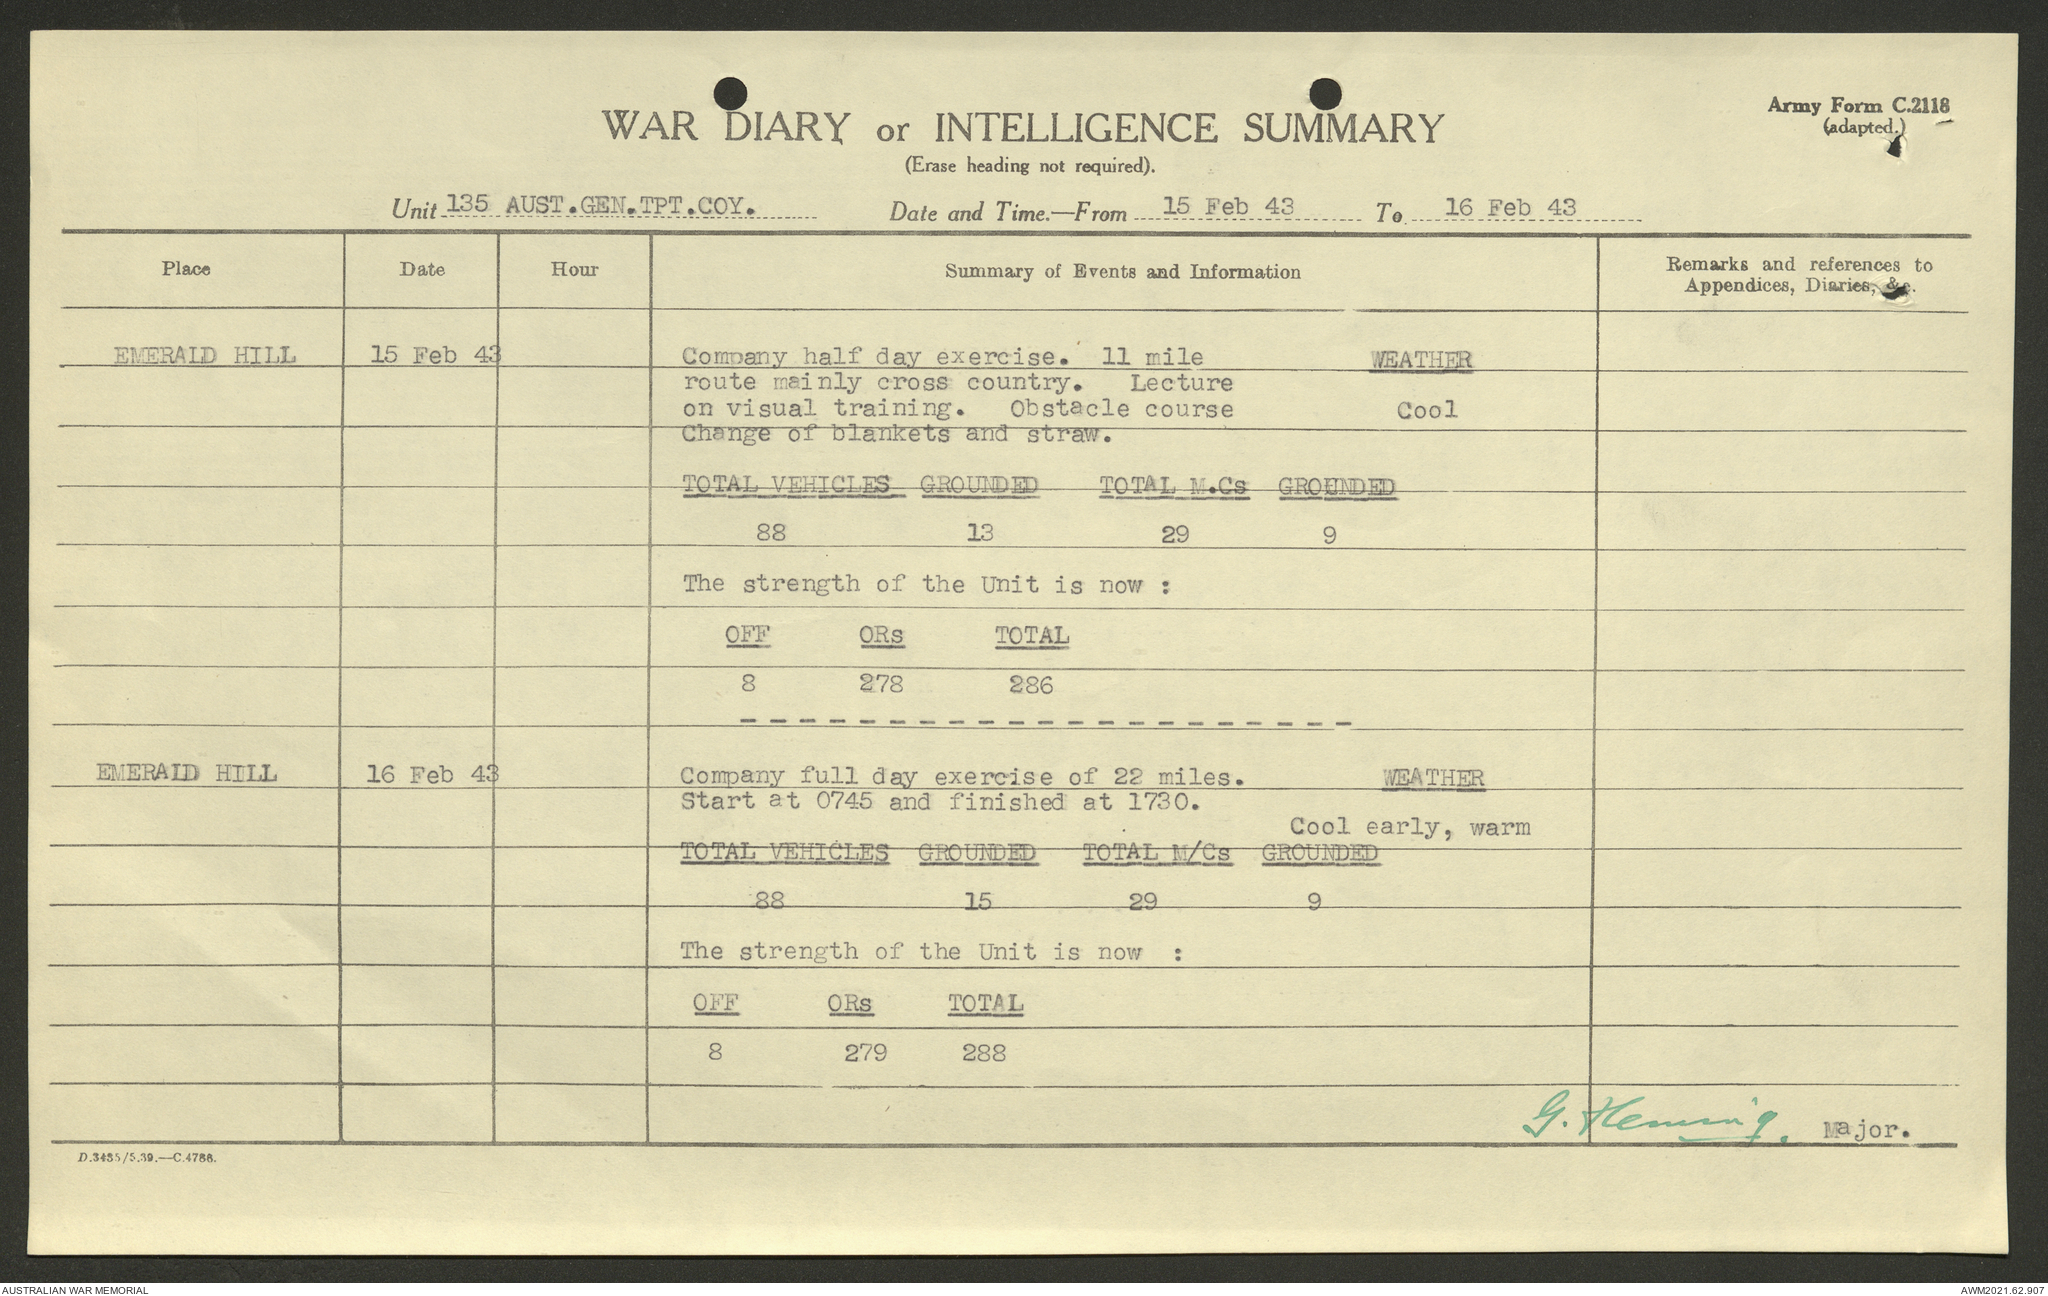 Army Form C.2118
(adapted.)
WAR DIARY or INTELLIGENCE SUMMARY
(Erase heading not required).
Unit 135 AUST.GEN.TPT.COY. Date and Time.—From 15 Feb 43 To 16 Feb 43
Place Date Hour Summary of Events and Information Remarks and references to
Appendices, Diaries, &c.
EMERALD HILL 15 Feb 43 Company half day exercise. 11 mile WEATHER
route mainly cross country. Lecture
on visual training. Obstacle course Cool
Change of blankets and straw.
TOTAL VEHICLES GROUNDED TOTAL M.Cs GROUNDED
88 13 29 9
The strength of the Unit is now :
OFF ORs TOTAL
8 278 286
EMERALD HILL 16 Feb 43 Company full day exercise of 22 miles. WEATHER
Start at 0745 and finished at 1730.
Cool early, warm
TOTAL VEHICLES GROUNDED TOTAL M/Cs GROUNDED
88 15 29 9
The strength of the Unit is now :
OFF ORs TOTAL
8 279 288
G. Fleming. Major.
D.3435/5.39.—C.4786.
AUSTRALIAN WAR MEMORIAL AWM2021.62.907